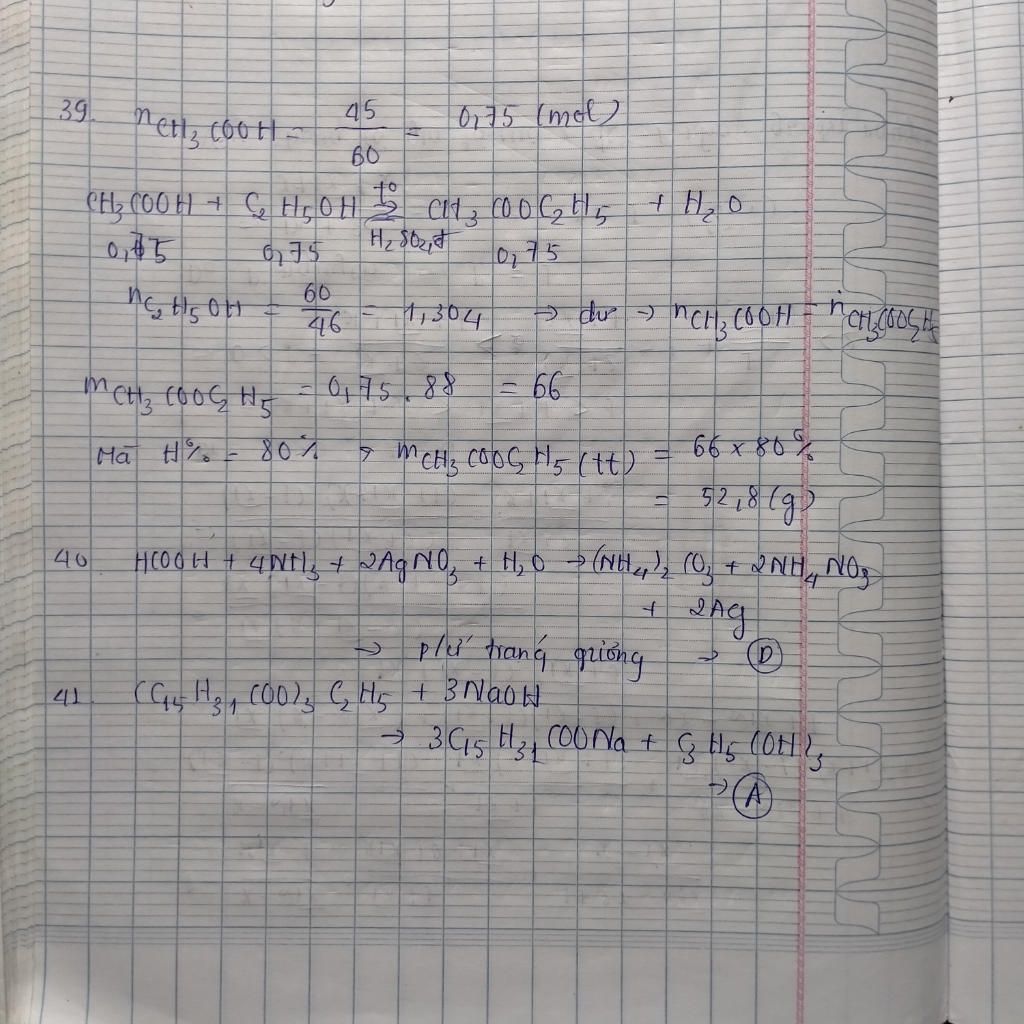 39. nCH₃COOH = 45/60 = 0,75 (mol)
CH₃COOH + C₂H₅OH ⇌ (t°, H₂SO₂,đ) CH₃COOC₂H₅ + H₂O
0,75 0,75 0,75
nC₂H₅OH = 60/46 = 1,304 → dư → nCH₃COOH = nCH₃COOC₂H₅
mCH₃COOC₂H₅ = 0,75 . 88 = 66
Mà H% = 80% → mCH₃COOC₂H₅ (tt) = 66 x 80%
= 52,8 (g)
40 HCOOH + 4NH₃ + 2AgNO₃ + H₂O → (NH₄)₂CO₃ + 2NH₄NO₃
+ 2Ag
→ p/ứ tráng gương → D
41. (C₁₅H₃₁COO)₃C₂H₅ + 3NaOH
→ 3C₁₅H₃₁COONa + C₃H₅(OH)₃
→ A